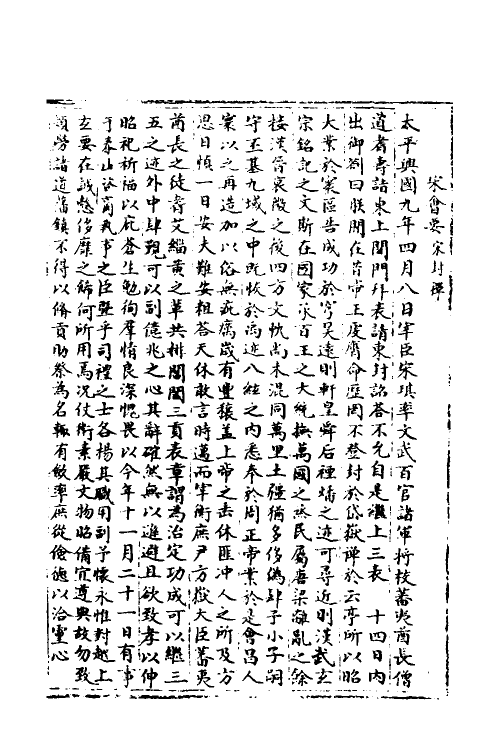 宋會要 宋封禪
太平興國九年四月八日宰臣宋琪率文武百官諸軍將校蕃夷酋長僧
道耆壽詣東上閤門拜表請東封詔荅不允自是繼上三表 十四日內
出御劄曰朕聞在昔帝王受膺命歷罔不登封於岱嶽禪於云亭所以昭
大業於寰區告成功於穹昊遠則軒皇舜后種燔之迹可尋近則漢武玄
宗銘記之文斯在國家承百王之大統撫萬國之烝民屬唐梁離亂之餘
接漢晉衰微之後四方文軌尚未混同萬里土疆猶多侈偽肆予小子嗣
守丕基九域之中既牧於禹迹八紘之內悉奉於周正帝業於是會昌人
寰以之再造加以俗無疵癘歲有豐穰蓋上帝之垂休匪冲人之所及方
思日慎一日安夫難安粗荅天休敢言時邁而宰衡庶尹方嶽大臣蕃夷
酋長之徒耆艾緇黃之輩共排閶闔三貢表章謂為治定功成可以繼三
五之迹外中肆覲可以副億兆之心其辭確然無以遜避且欲致孝以伸
昭祀祈福以庇蒼生勉徇羣情良深愧畏以今年十一月二十一日有事
于泰山諮爾執事之臣暨乎司禮之士各揚其職用副予懷永惟對越上
玄要在誠慤侈靡之飾何所用焉况仗衛素嚴文物昭備宜遵典故勿致
煩勞諸道藩鎮不得以脩貢助祭為名輒有斂率庶從儉德以洽靈心